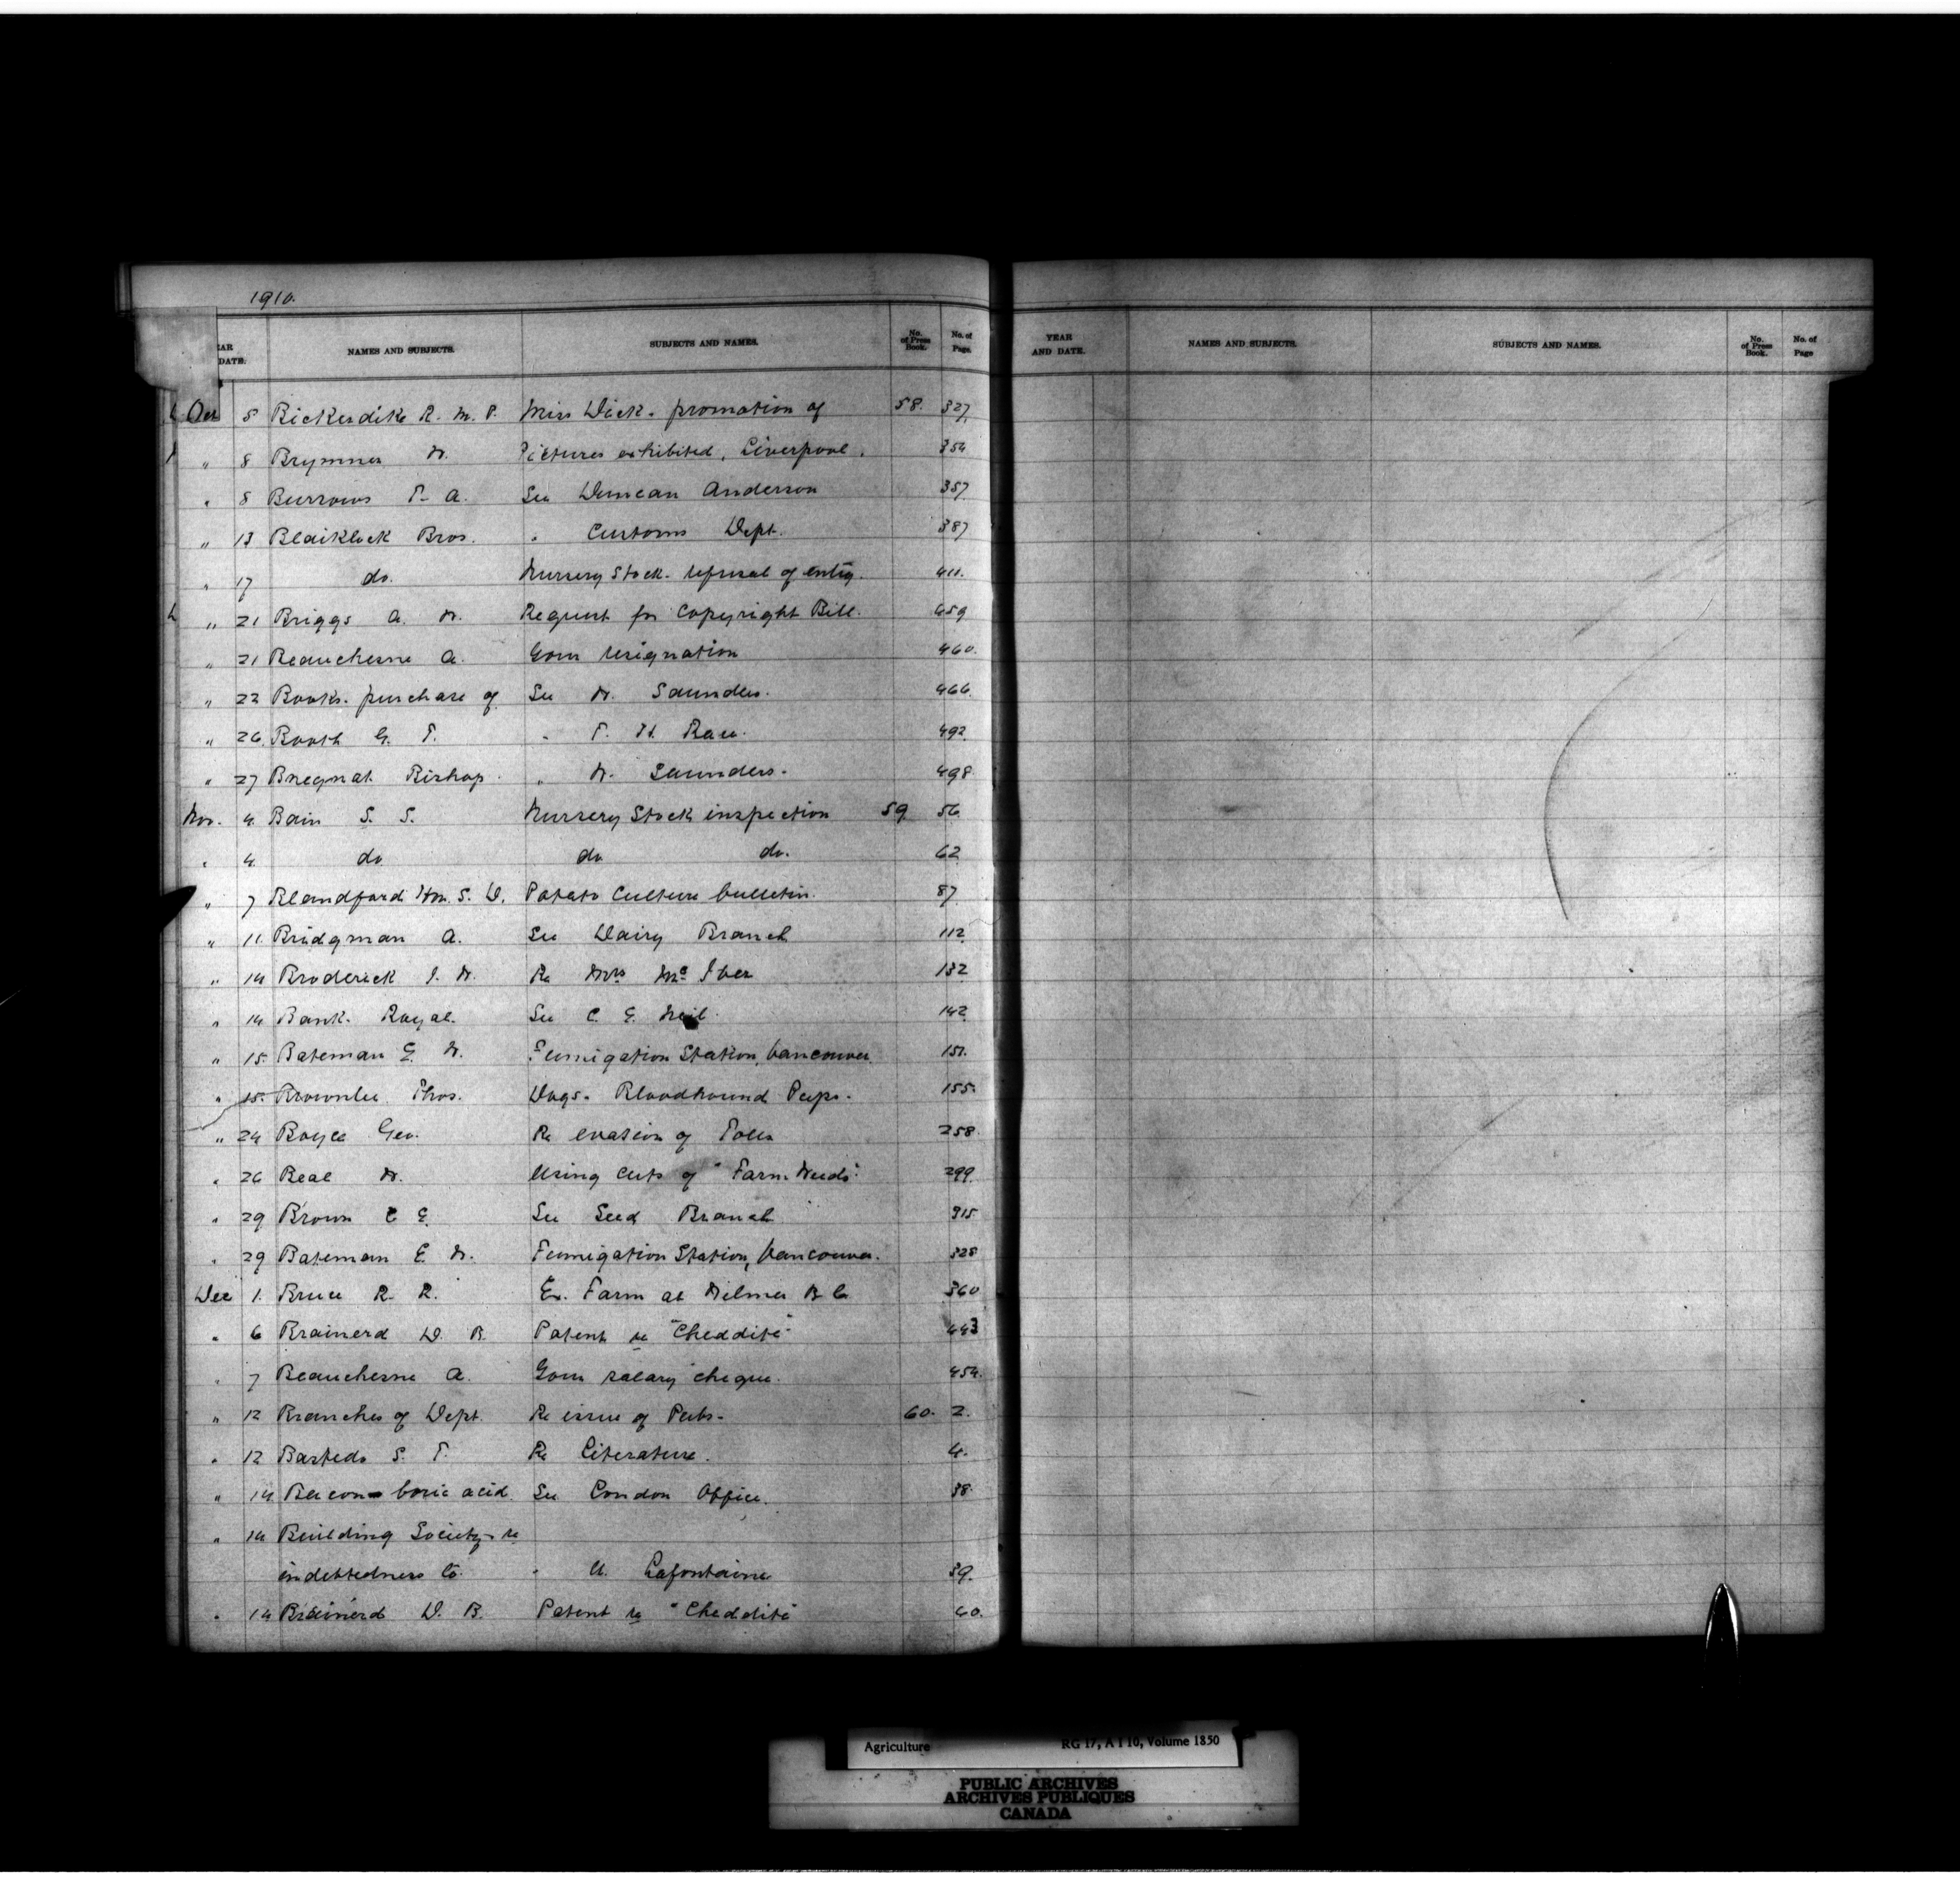 1910.
YEAR AND DATE. NAMES AND SUBJECTS. SUBJECTS AND NAMES. No. of Press Book. No. of Page.
Oct 5 Bickerdike R. M. P. Miss Dick - promotion of 58. 327.
" 8 Brymner W. Pictures exhibited, Liverpool. 354
" 8 Burrows T. A. See Duncan Anderson 357
" 13 Blaiklock Bros. " Customs Dept. 387
" 17 do. Nursery Stock - refusal of entry. 411.
" 21 Briggs A. W. Request for Copyright Bill. 459
" 21 Beauchesne A. Gow resignation 460.
" 22 Books - purchase of See W. Saunders. 466.
" 26. Booth G. T. " T. H. Race. 492
" 27 Bregnat Bishop " W. Saunders. 498
Nov. 4. Bain S. S. Nursery Stock inspection 59 56
" 4. do do do. 62
" 7 Blandford Hon. S. D. Potato Culture bulletin. 87
" 11. Bridgman A. See Dairy Branch 112
" 14 Broderick J. W. Re Mrs McIver 132
" 14 Bank - Royal. See C. E. Neil. 142
" 15 Bateman E. W. Fumigation Station, Vancouver. 151.
" 15. Brownlee Thos. Dogs - Bloodhound Pups. 155.
" 24 Boyce Geo. Re evasion of Tolls 258
" 26 Beal W. Using cuts of "Farm Weeds" 299
" 29 Brown C E. See Seed Branch 315
" 29 Bateman E. W. Fumigation Station, Vancouver. 328
Dec 1. Bruce R. R. Ex. Farm at Wilmer B C 360
" 6 Brainerd D. B. Patent re "Cheddite" 443
" 7 Beauchesne A. Gow salary cheque. 454.
" 12 Branches of Dept. Re issue of Pubs. 60. 2.
" 12 Bastedo S. T. Re Literature. 4.
" 14 Bacon - boric acid. See London Office. 38
" 14 Building Society - re
indebtedness to " U. Lafontaine 39.
" 14 Brainerd D. B. Patent re "Cheddite" 40.
YEAR AND DATE. NAMES AND SUBJECTS. SUBJECTS AND NAMES. No. of Press Book. No. of Page
Agriculture RG 17, A I 10, Volume 1850
PUBLIC ARCHIVES
ARCHIVES PUBLIQUES
CANADA